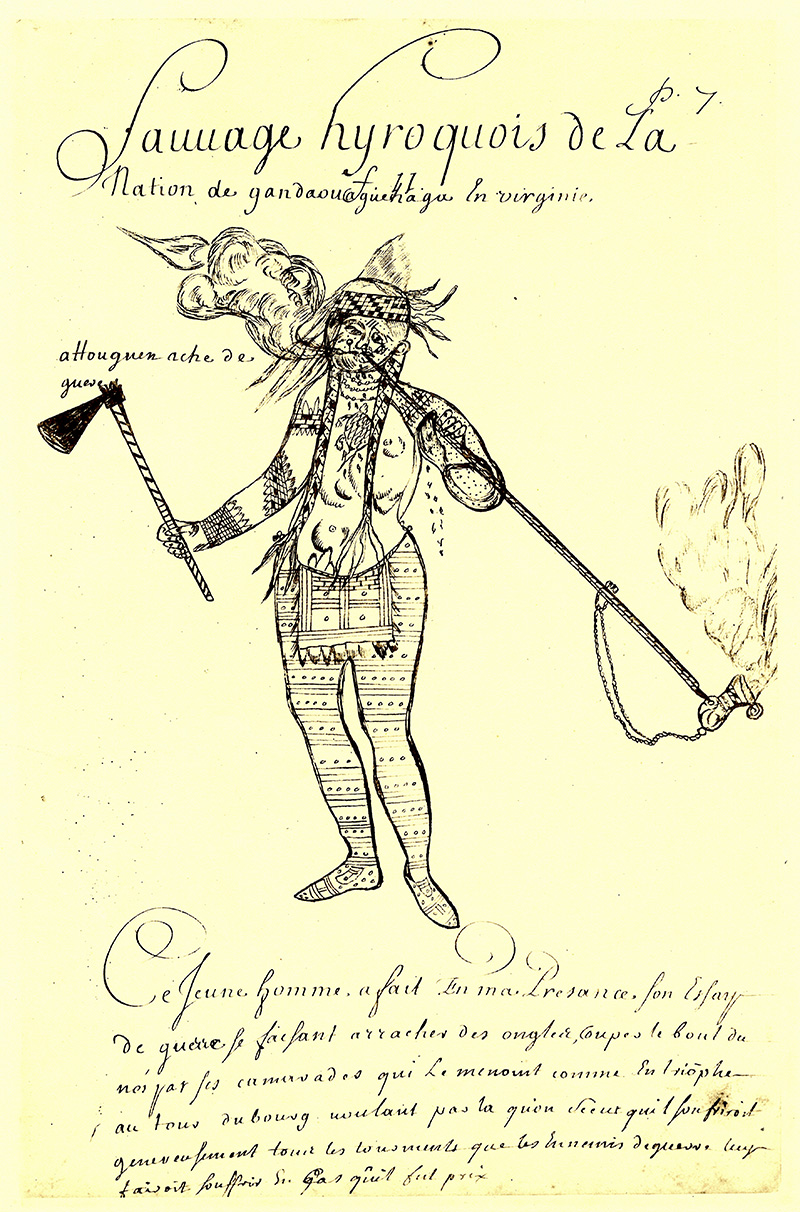 p. 7.
Sauuage hyroquois de La
Nation de En virginie.
attouguen ache de
guere
Ce Jeune homme a fait En ma Presance son Essay
de guerre se faisant arracher des ongles, Couper le bout du
nés par ses camarades qui Le menoint comme En triõphe
au tour du bourg uoulant par la quon Vceut quil souffriroit
genereusement tous les tourments que les Ennemis de guerre luy
fairoit souffrir En Cas quil fut prix